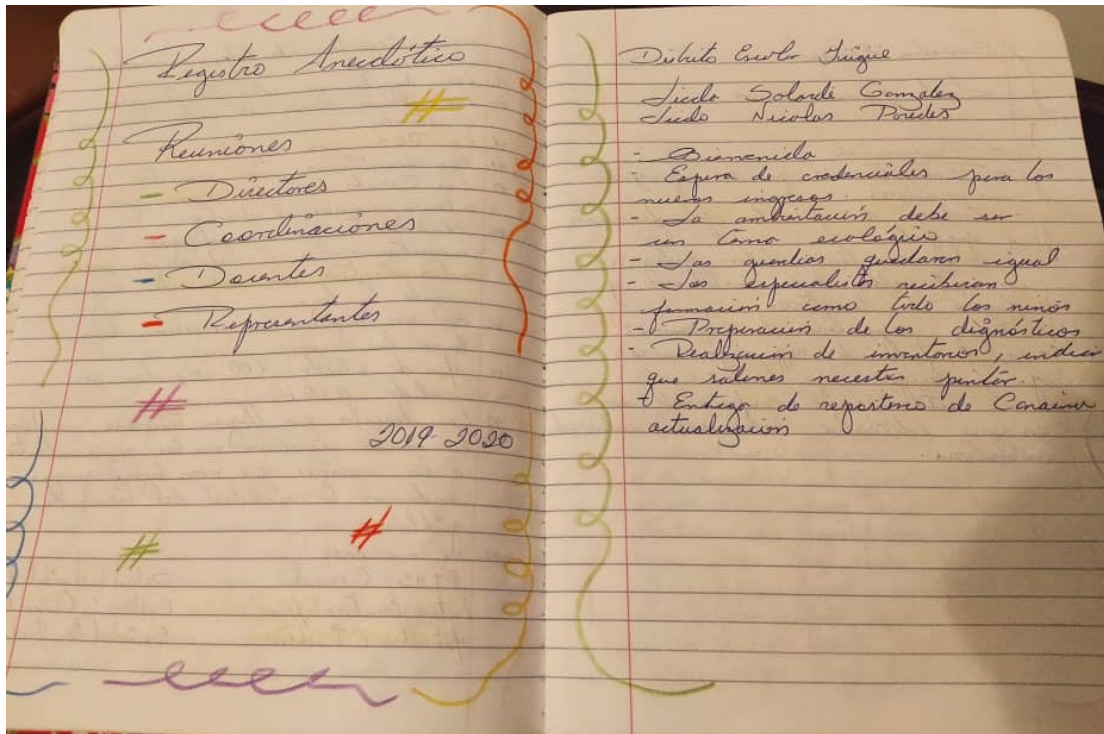 Registro Anecdótico
Reuniones
- Directores
- Coordinaciones
- Docentes
- Representantes
2019-2020
Distrito Escolar
Licda González
Licdo Nicolas Paredes
- Bienvenida
- Espera de credenciales para los
nuevos ingresos.
- La ambientación debe ser
un tema ecológico
- Las guardias quedaron igual
- Los especialistas recibiran
formación como todo los niños
- Preparación de los dignósticos
- Realización de inventarios, indicar
que salones necesita pintar.
- de de
actualización